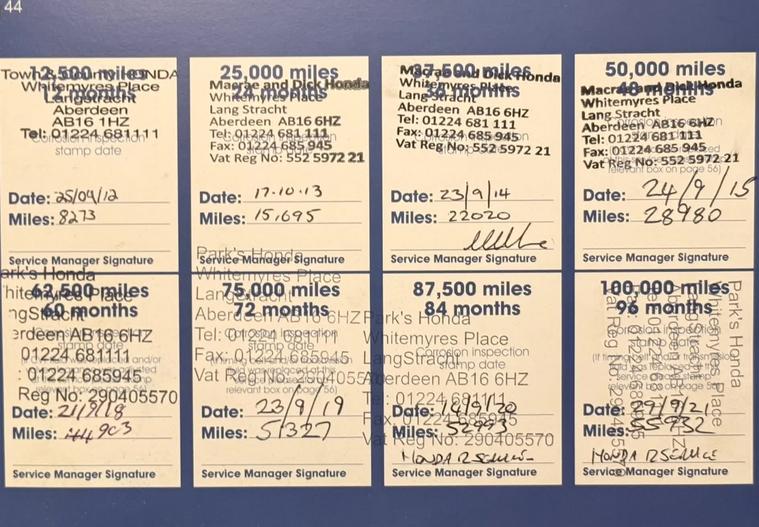 44
12,500 miles
12 months
Town & County HONDA
Whitemyres Place
Langstracht
Aberdeen
AB16 1HZ
Tel: 01224 681111
Corrosion inspection
stamp date
Date: 25/04/12
Miles: 8273
Service Manager Signature
25,000 miles
24 months
Macrae and Dick Honda
Whitemyres Place
Lang Stracht
Aberdeen AB16 6HZ
Tel: 01224 681 111
Fax: 01224 685 945
Vat Reg No: 552 5972 21
Date: 17.10.13
Miles: 15,695
Service Manager Signature
37,500 miles
36 months
Macrae and Dick Honda
Whitemyres Place
Lang Stracht
Aberdeen AB16 6HZ
Tel: 01224 681 111
Fax: 01224 685 945
Vat Reg No: 552 5972 21
Date: 23/9/14
Miles: 22020
Service Manager Signature
50,000 miles
48 months
Macrae and Dick Honda
Whitemyres Place
Lang Stracht
Aberdeen AB16 6HZ
Tel: 01224 681 111
Fax: 01224 685 945
Vat Reg No: 552 5972 21
relevant box on page 56)
Date: 24/9/15
Miles: 28980
Service Manager Signature
62,500 miles
60 months
ark's Honda
hitemyres Place
ngStracht
erdeen AB16 6HZ
01224 681111
: 01224 685945
Reg No: 290405570
Date: 21/8/18
Miles: 44903
Service Manager Signature
75,000 miles
72 months
Park's Honda
Whitemyres Place
LangStracht
Aberdeen AB16 6HZ
Tel: 01224 681111
Fax: 01224 685945
Vat Reg No:
Corrosion inspection
stamp date
relevant box on page 56)
Date: 23/9/19
Miles: 51327
Service Manager Signature
87,500 miles
84 months
Park's Honda
Whitemyres Place
LangStracht
Aberdeen AB16 6HZ
Tel: 01224 681111
Fax: 01224 685945
Vat Reg No: 290405570
Corrosion inspection
stamp date
Date:
Miles: 52993
HONDA
Service Manager Signature
100,000 miles
96 months
Park's Honda
Whitemyres Place
Date: 29/9/21
Miles: 55932
HONDA 12 SERVICE
Service Manager Signature